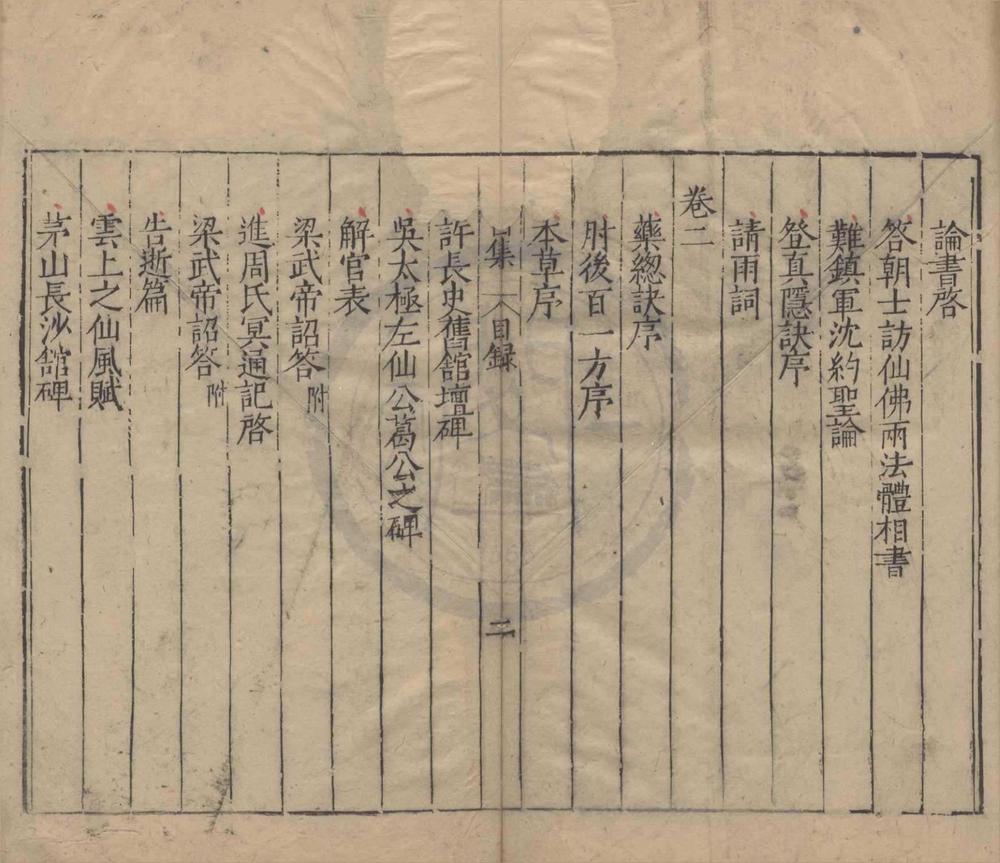 論書啓
答朝士訪仙佛兩法體相書
難鎮軍沈約聖論
登真隱訣序
請雨詞
卷二
藥總訣序
肘後百一方序
本草序
集 目録 二
許長史舊舘壇碑
吳太極左仙公葛公之碑
解官表
梁武帝詔答 附
進周氏冥通記啓
梁武帝詔答 附
告逝篇
雲上之仙風賦
茅山長沙舘碑